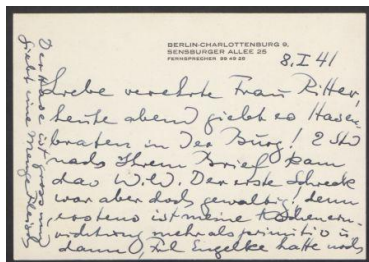 BERLIN-CHARLOTTENBURG 9,
SENSBURGER ALLEE 25
FERNSPRECHER 99 45 25
8. I 41
Liebe verehrte Frau Ritter,
heute abend giebt es Hasen-
braten in der Burg! 2 Std
nach Ihrem Brief kam
das W.W. Der erste Schreck
war aber doch gewaltig! denn
erstens ist meine Küchenein-
richtung mehr als primitiv u
dann, Frl Engelke hatte noch
Der Hase ist gross und
giebt eine Menge Fleisch